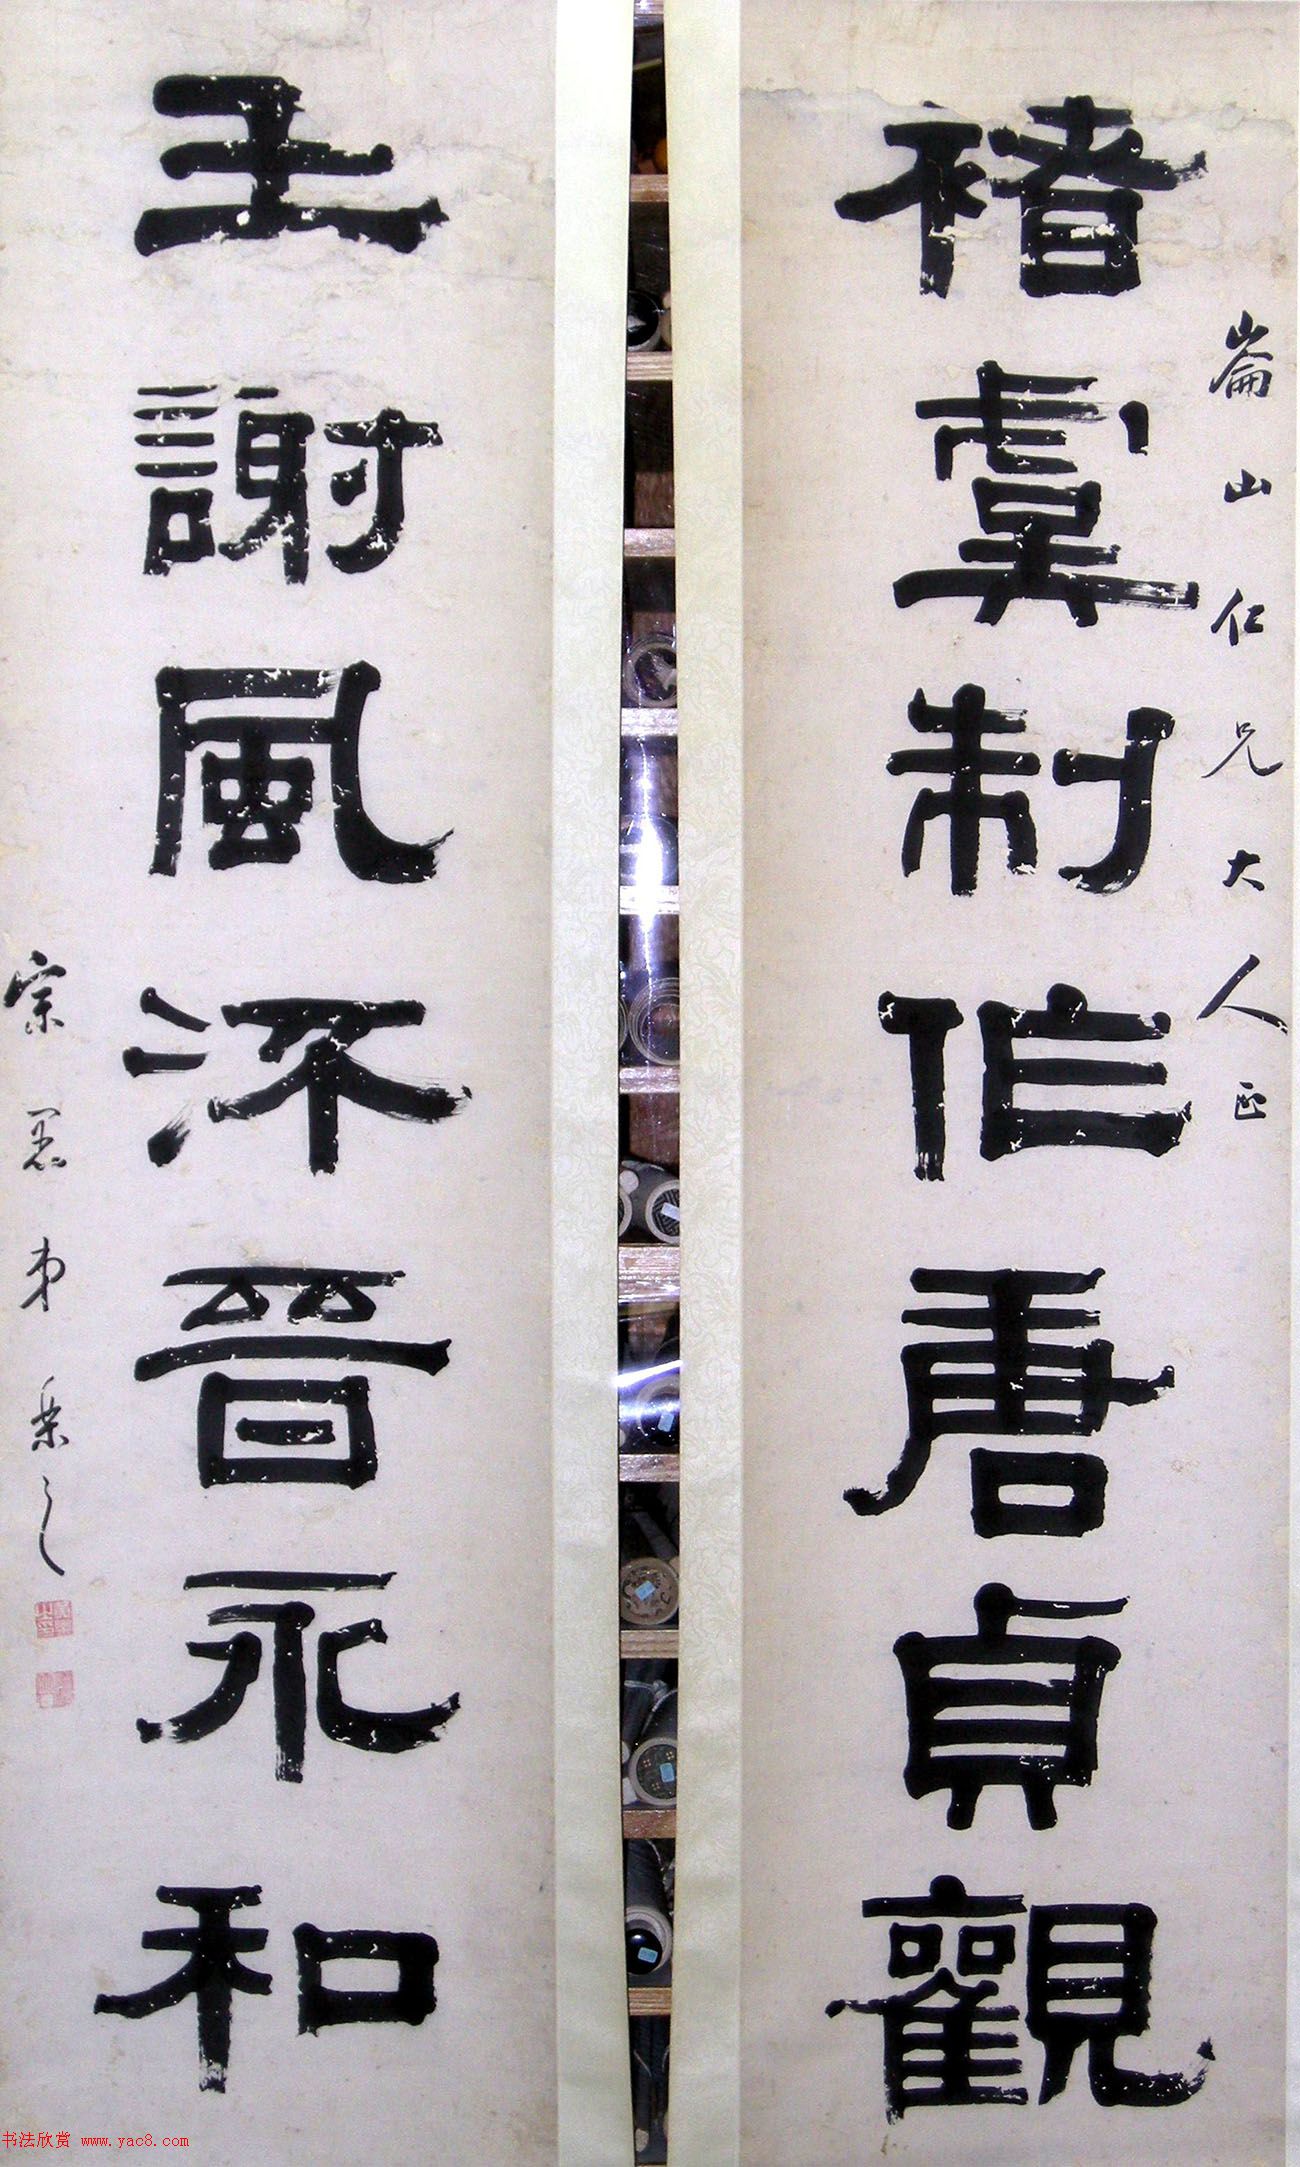 崙山仁兄大人正
褚虞制作唐貞觀
王謝風流晉永和
宗愚弟之
书法欣赏 www.yac8.com